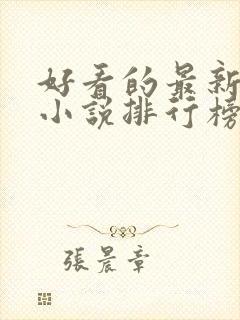 好看的最新
小说排行榜
張晨章